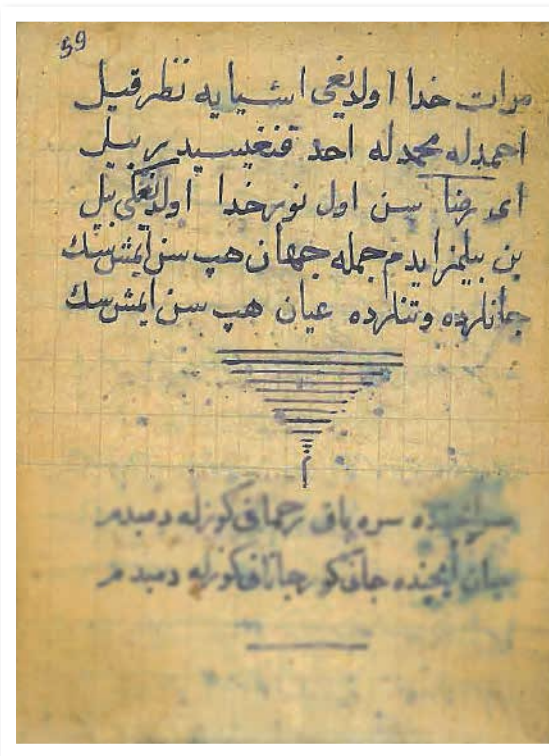 59
مرات خدا اولدیغی اشیایه نظر قیل
احمدله محمدله احد قنغیسیدر بیل
ای رضا سن اول نور خدا اولدیغکی بیل
بن بیلمز ایدم جمله جهان هپ سن ایمش سك
جانلرده و تنلرده عیان هپ سن ایمش سك
سره باق رحمانی کوزله دمبدم
ایچنده جانی کور جانانی کوزله دمبدم